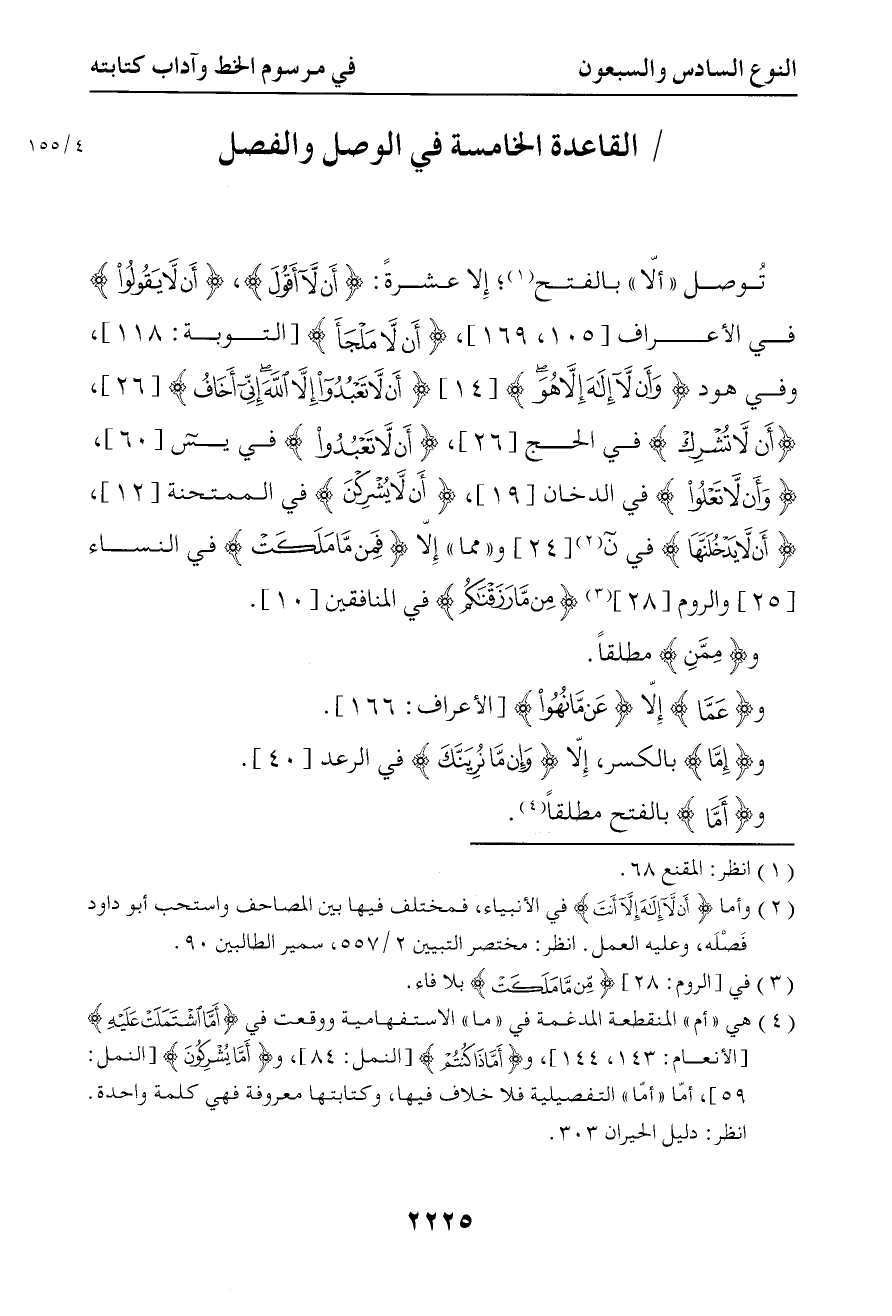 النوع السادس والسبعون في مرسوم الخط وآداب كتابته
/ القاعدة الخامسة في الوصل والفصل ٤/١٥٥
تُوصل «ألّا» بالفتح(١)؛ إلا عشرةً: ﴿أَن لَّآ أَقُولَ﴾، ﴿أَن لَّا يَقُولُوا۟﴾
في الأعراف [١٠٥، ١٦٩]، ﴿أَن لَّا مَلْجَأَ﴾ [التوبة: ١١٨]،
وفي هود ﴿وَأَن لَّآ إِلَٰهَ إِلَّا هُوَ ۖ﴾ [١٤] ﴿أَن لَّا تَعْبُدُوٓا۟ إِلَّا ٱللَّهَ ۖ إِنِّىٓ أَخَافُ﴾ [٢٦]،
﴿أَن لَّا تُشْرِكْ﴾ في الحج [٢٦]، ﴿أَن لَّا تَعْبُدُوا۟﴾ في يسٓ [٦٠]،
﴿وَأَن لَّا تَعْلُوا۟﴾ في الدخان [١٩]، ﴿أَن لَّا يُشْرِكْنَ﴾ في الممتحنة [١٢]،
﴿أَن لَّا يَدْخُلَنَّهَا﴾ في نٓ(٢) [٢٤] و«مما» إلّا ﴿فَمِن مَّا مَلَكَتْ﴾ في النساء
[٢٥] والروم [٢٨](٣) ﴿مِن مَّا رَزَقْنَٰكُم﴾ في المنافقين [١٠].
و﴿مِمَّنِ﴾ مطلقاً.
و﴿عَمَّا﴾ إلّا ﴿عَن مَّا نُهُوا۟﴾ [الأعراف: ١٦٦].
و﴿إِمَّا﴾ بالكسر، إلّا ﴿وَإِن مَّا نُرِيَنَّكَ﴾ في الرعد [٤٠].
و﴿أَمَّا﴾ بالفتح مطلقاً(٤).
(١) انظر: المقنع ٦٨.
(٢) وأما ﴿أَن لَّآ إِلَٰهَ إِلَّآ أَنتَ﴾ في الأنبياء، فمختلف فيها بين المصاحف واستحب أبو داود
فَصْلَه، وعليه العمل. انظر: مختصر التبيين ٢/٥٥٧، سمير الطالبين ٩٠.
(٣) في [الروم: ٢٨] ﴿مِّن مَّا مَلَكَتْ﴾ بلا فاء.
(٤) هي «أم» المنقطعة المدغمة في «ما» الاستفهامية ووقعت في ﴿أَمَّا ٱشْتَمَلَتْ عَلَيْهِ﴾
[الأنعام: ١٤٣، ١٤٤]، و﴿أَمَّاذَا كُنتُمْ﴾ [النمل: ٨٤]، و﴿أَمَّا يُشْرِكُونَ﴾ [النمل:
٥٩]، أمّا «أمّا» التفصيلية فلا خلاف فيها، وكتابتها معروفة فهي كلمة واحدة.
انظر: دليل الحيران ٣٠٣.
٢٢٢٥